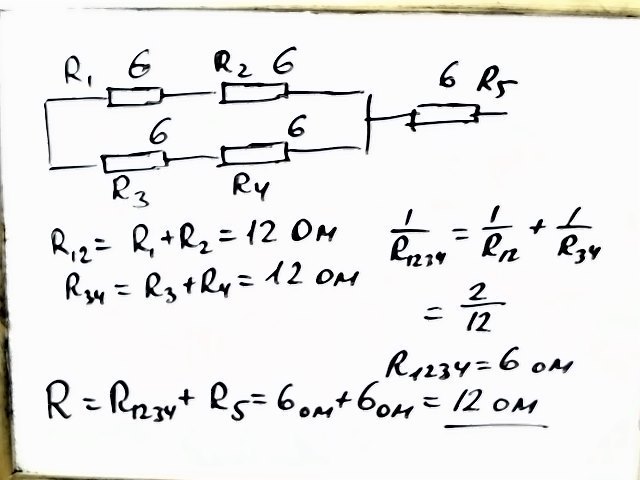 R₁ 6 R₂ 6
6 R₅
6 6
R₃ R₄
R₁₂ = R₁ + R₂ = 12 Ом
R₃₄ = R₃ + R₄ = 12 Ом
1/R₁₂₃₄ = 1/R₁₂ + 1/R₃₄
= 2/12
R₁₂₃₄ = 6 Ом
R = R₁₂₃₄ + R₅ = 6 Ом + 6 Ом = 12 Ом